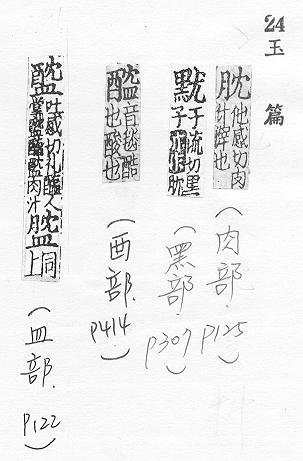 24
玉篇
䏙他感切肉
汁滓也
(肉部. P125)
于流切黑
子
(黑部. P307)
醓音毯酷
也酸也
(酉部. P414.)
吐感切礼醓人
肉汁
上同
(皿部. P122)